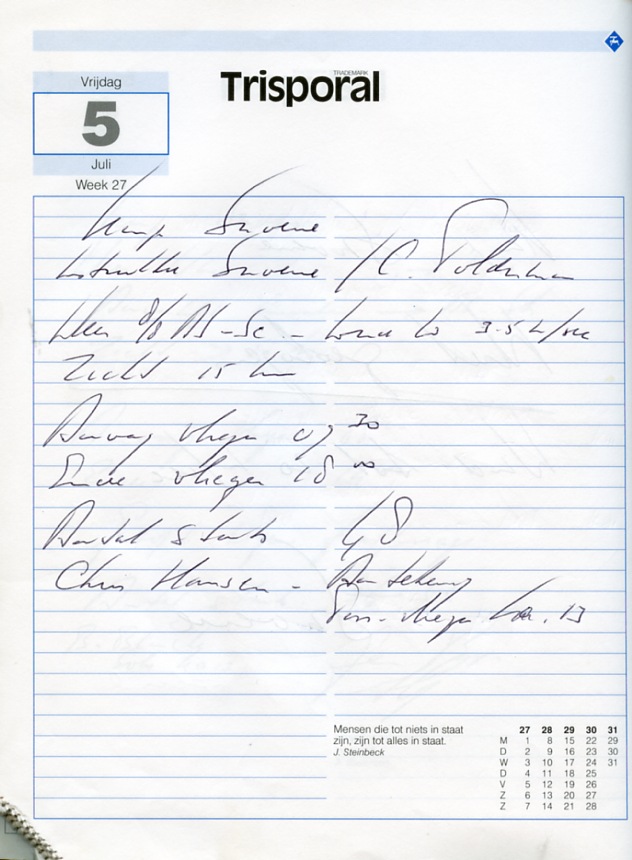 Vrijdag
5
Juli
Week 27
TRADEMARK
Trisporal
Kamp
Instructie / C. Polderman
Weer 8/8 AS-Sc - 3.5 m/sec
Zicht 15 km
Aanvang vliegen 09 30
Einde vliegen 18 00
Aantal starts 48
Chris Hansen - Aantekening
Pass. vliegen
Mensen die tot niets in staat
zijn, zijn tot alles in staat.
J. Steinbeck
27 28 29 30 31
M 1 8 15 22 29
D 2 9 16 23 30
W 3 10 17 24 31
D 4 11 18 25
V 5 12 19 26
Z 6 13 20 27
Z 7 14 21 28